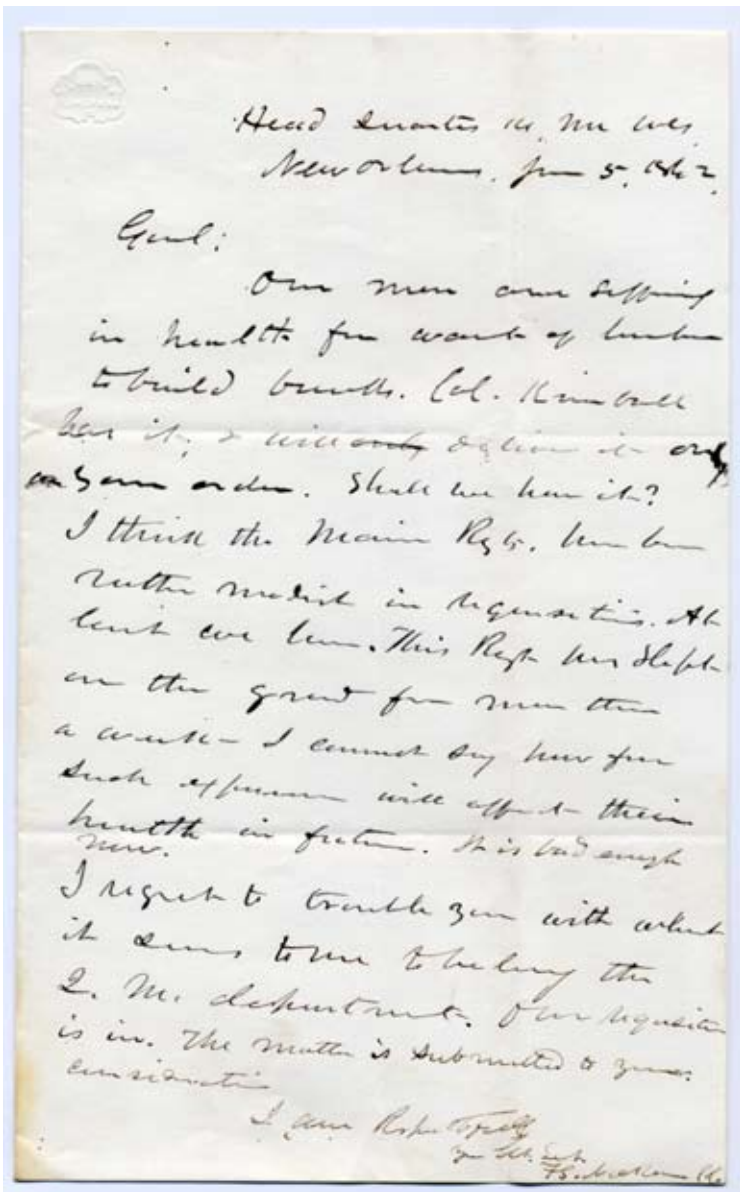 Head Quarters 14, Me Vols
New Orleans, June 5, 1862
Genl:
Our men are suffring
in health for want of lumber
to build bunks. Col. Kimball
has it, & will only deliver it only
on your order. Shall we have it?
I think the Maine Regts. have been
rather modest in requisitions. At
least we have. This Regt has slept
on the ground for more than
a week - I cannot say how far
such exposure will affect their
health in future. It is bad enough
now.
I regret to trouble you with what
it seems to me to belong the
Q. M. department. Our requisition
is in. The matter is submitted to your
consideration
I am Respectfully
Your Obt. Servt.
F.S. Nickerson Col.